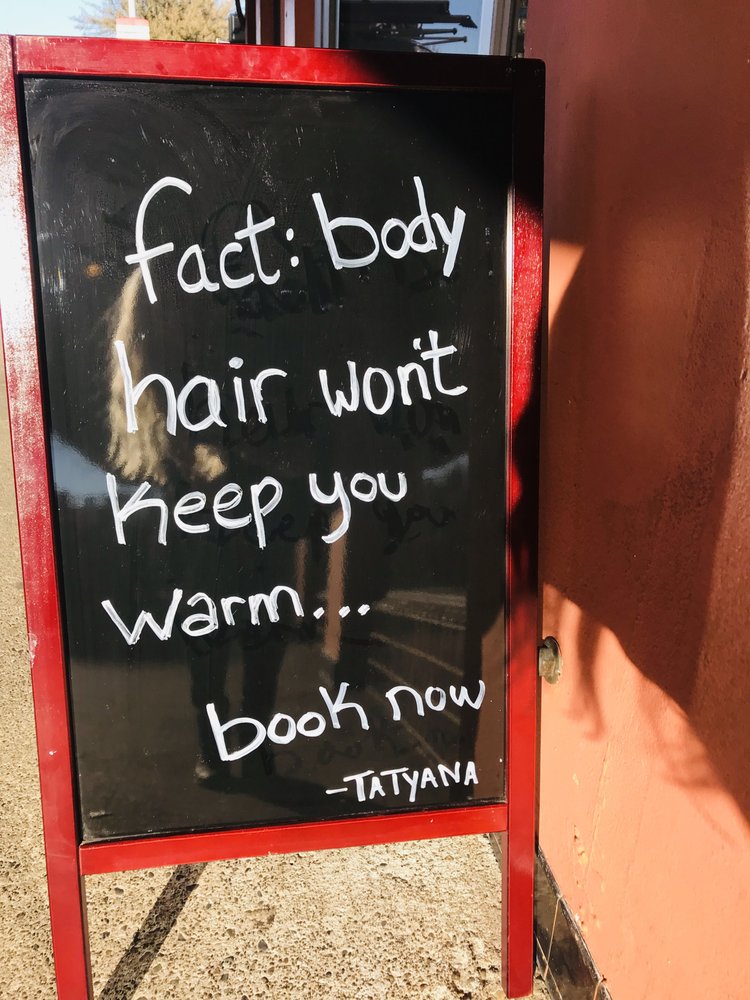 fact: body
hair won't
keep you
warm...
book now
-TATYANA